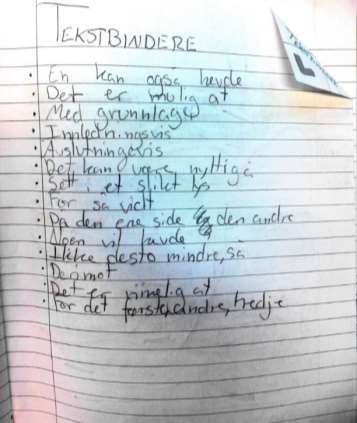 TEKSTBINDERE
• En kan også hevde
• Det er mulig at
• Med grunnlag i
• Innledningsvis
• Avslutningsvis
• Det kan være nyttig å
• Sett i et slikt lys
• For så vidt
• På den ene side den andre
• Noen vil hevde
• Ikke desto mindre, så
• Derimot
• Det er rimelig at
• For det første, andre, tredje